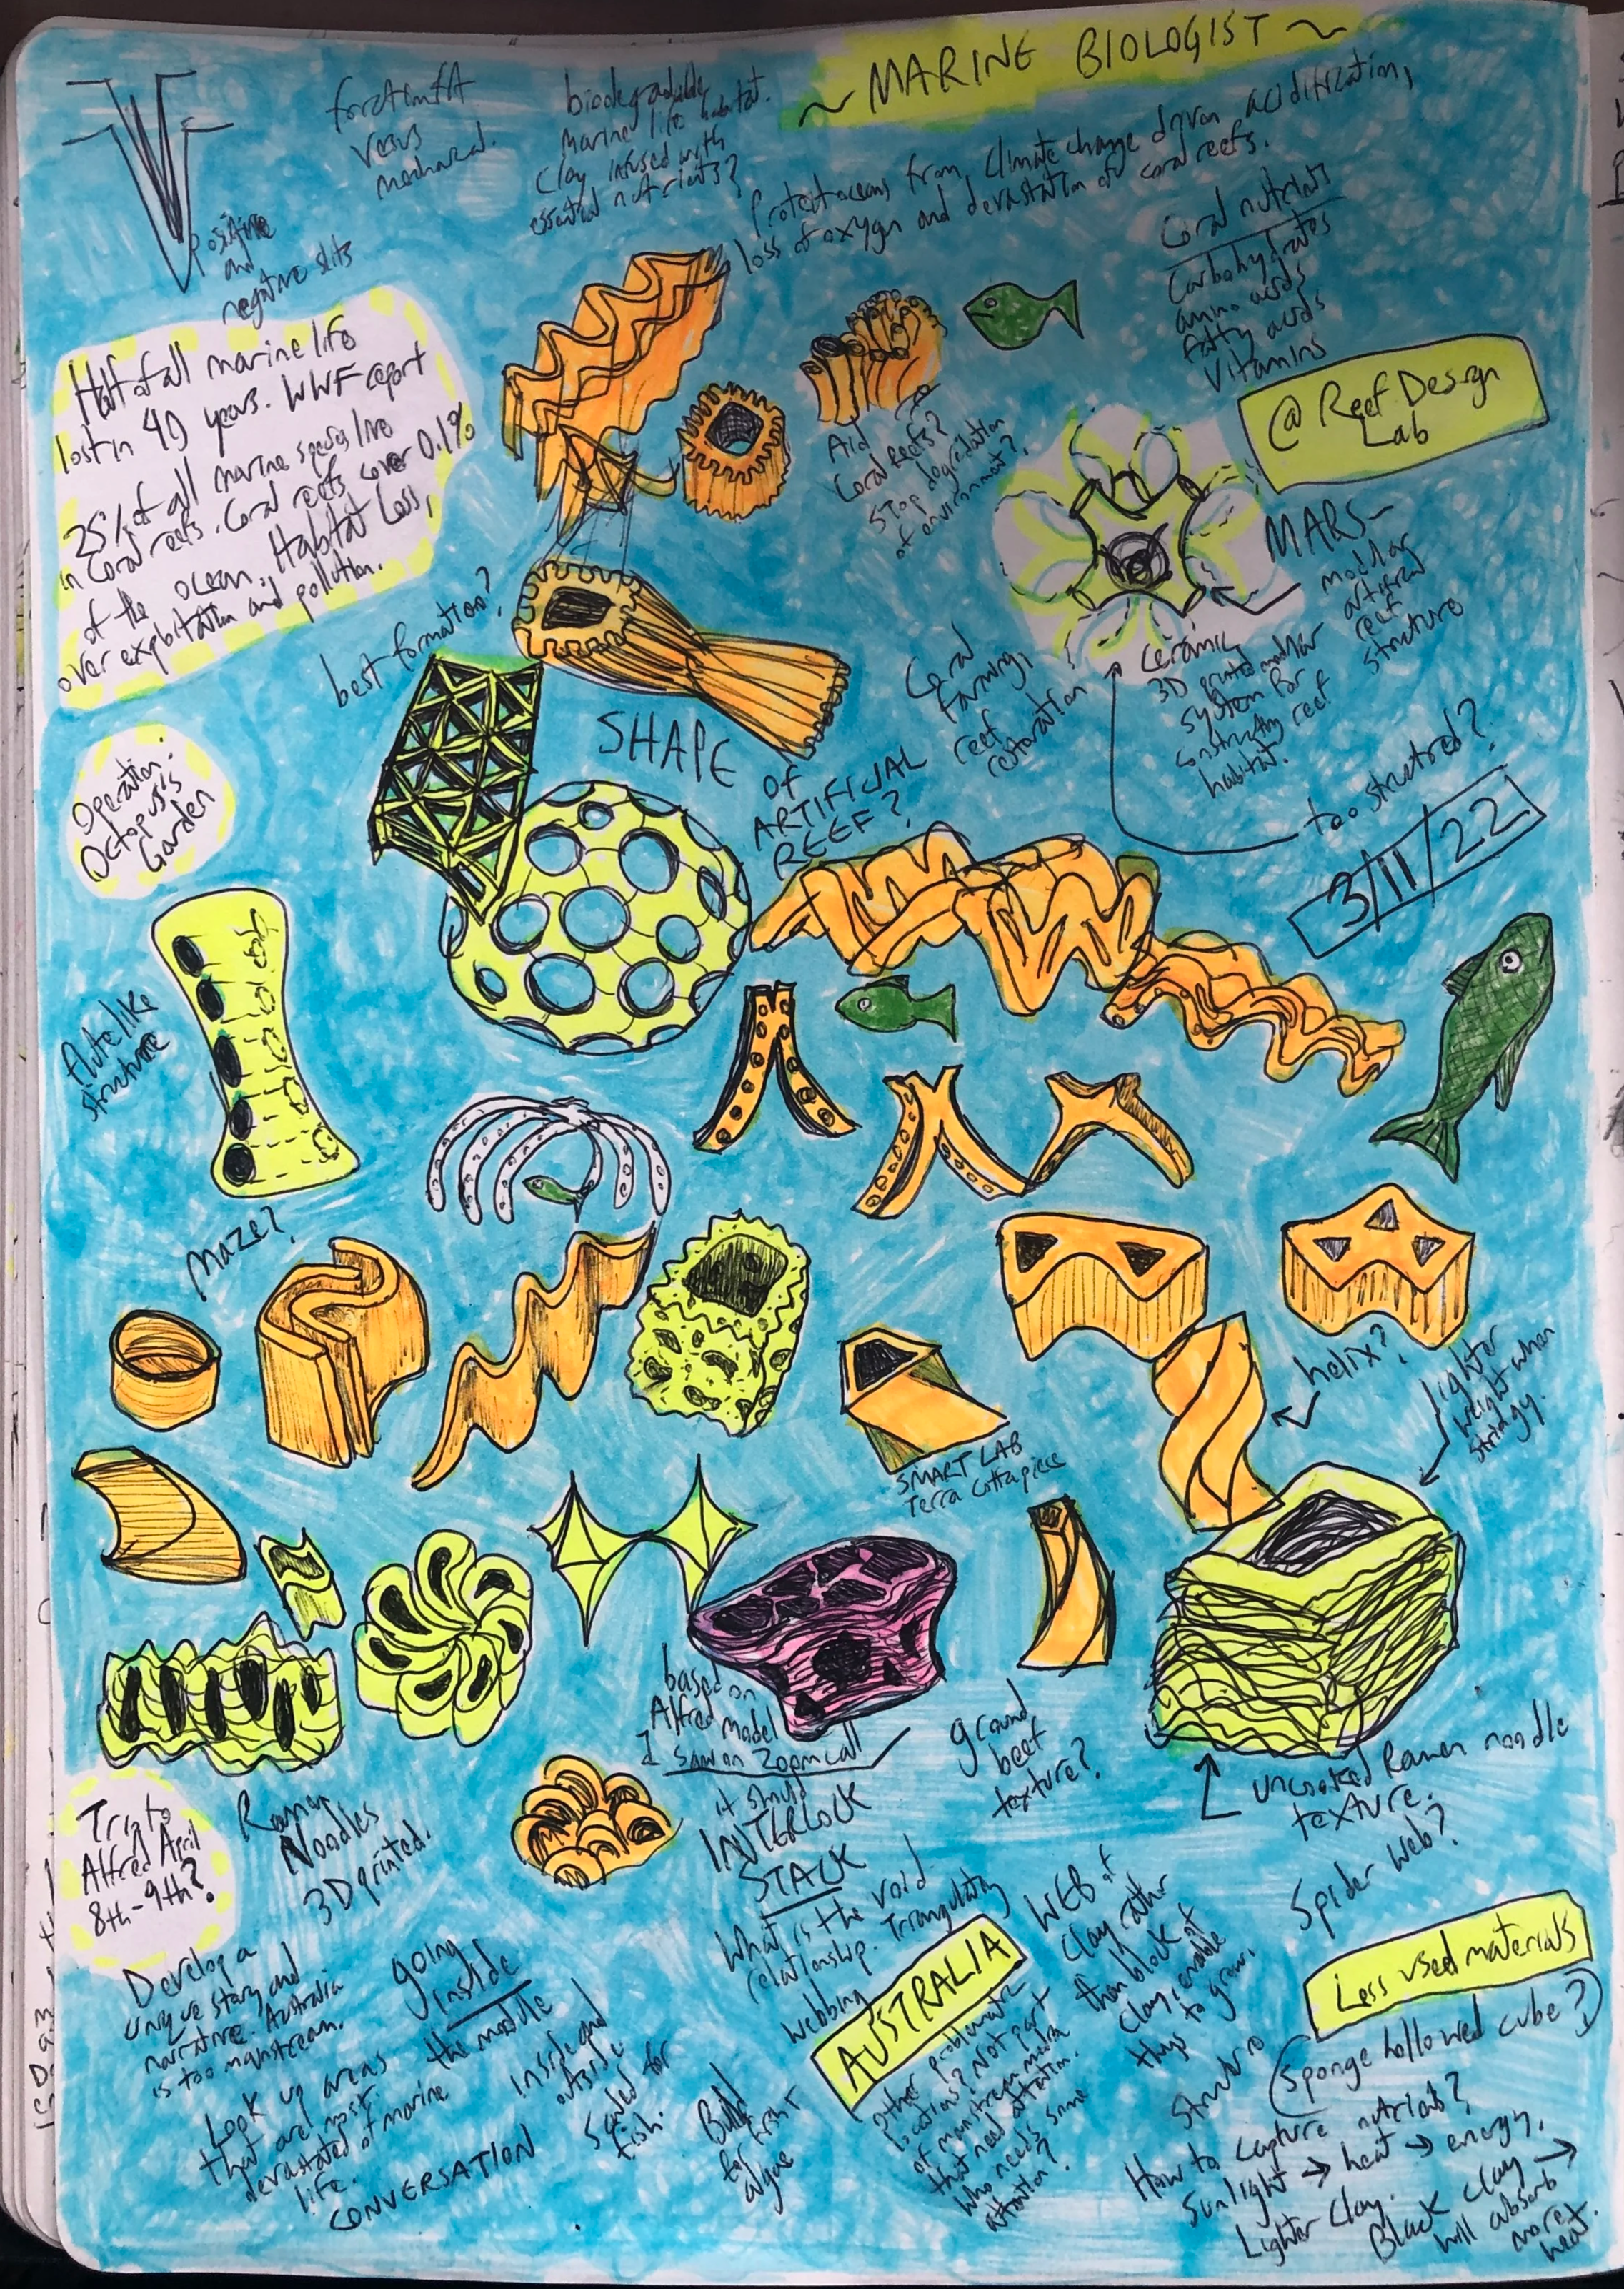 ~ MARINE BIOLOGIST ~
versus
mechanical.
Positive
and
negative slits
biodegradable
marine life habitat.
Clay infused with
essential nutrients?
Protect oceans from climate change driven acidification,
loss of oxygen and devastation of coral reefs.
Coral nutrients
Carbohydrates
amino acids
fatty acids
Vitamins
Half of all marine life
lost in 40 years. WWF report
25% of all marine species live
in Coral reefs. Coral reefs cover 0.1%
of the ocean. Habitat Loss,
over exploitation and pollution.
Aid
Coral Reefs?
Stop degradation
of environment?
@ Reef Design
Lab
MARS-
modular
artificial
reef
structure
ceramic
3D printed modular
system for
constructing reef
habitat.
too structured?
3/11/22
best formation?
Coral
farming,
reef
restoration
SHAPE
OF
ARTIFICIAL
REEF?
Operation:
Octopus's
Garden
flute like
structure
Maze?
helix?
lighter
weight when
stringy.
SMART LAB
Terra cotta piece
based on
Alfred model
I saw on Zoom call
it should
INTERLOCK
STACK
What is the void
relationship. Triangulating
Webbing
ground
beef
texture?
uncooked Ramen noodle
texture.
Spider Web?
Trip to
Alfred April
8th-9th?
Ramen
Noodles
3D printed.
Develop a
unique story and
narrative. Australia
is too mainstream.
Look up areas
that are most
devastated of marine
life.
CONVERSATION
going
inside
the module
inside and
outside
Scaled for
fish.
Build
for first
algae
AUSTRALIA
Other problematic
locations? Not part
of mainstream media
that need attention.
Who needs some
attention?
WEB of
Clay rather
than block of
clay, enable
things to grow.
Structure
Less used materials
Sponge hollowed cube?
How to capture nutrients?
Sunlight → heat → energy.
Lighter Clay.
Black Clay →
will absorb
more
heat.